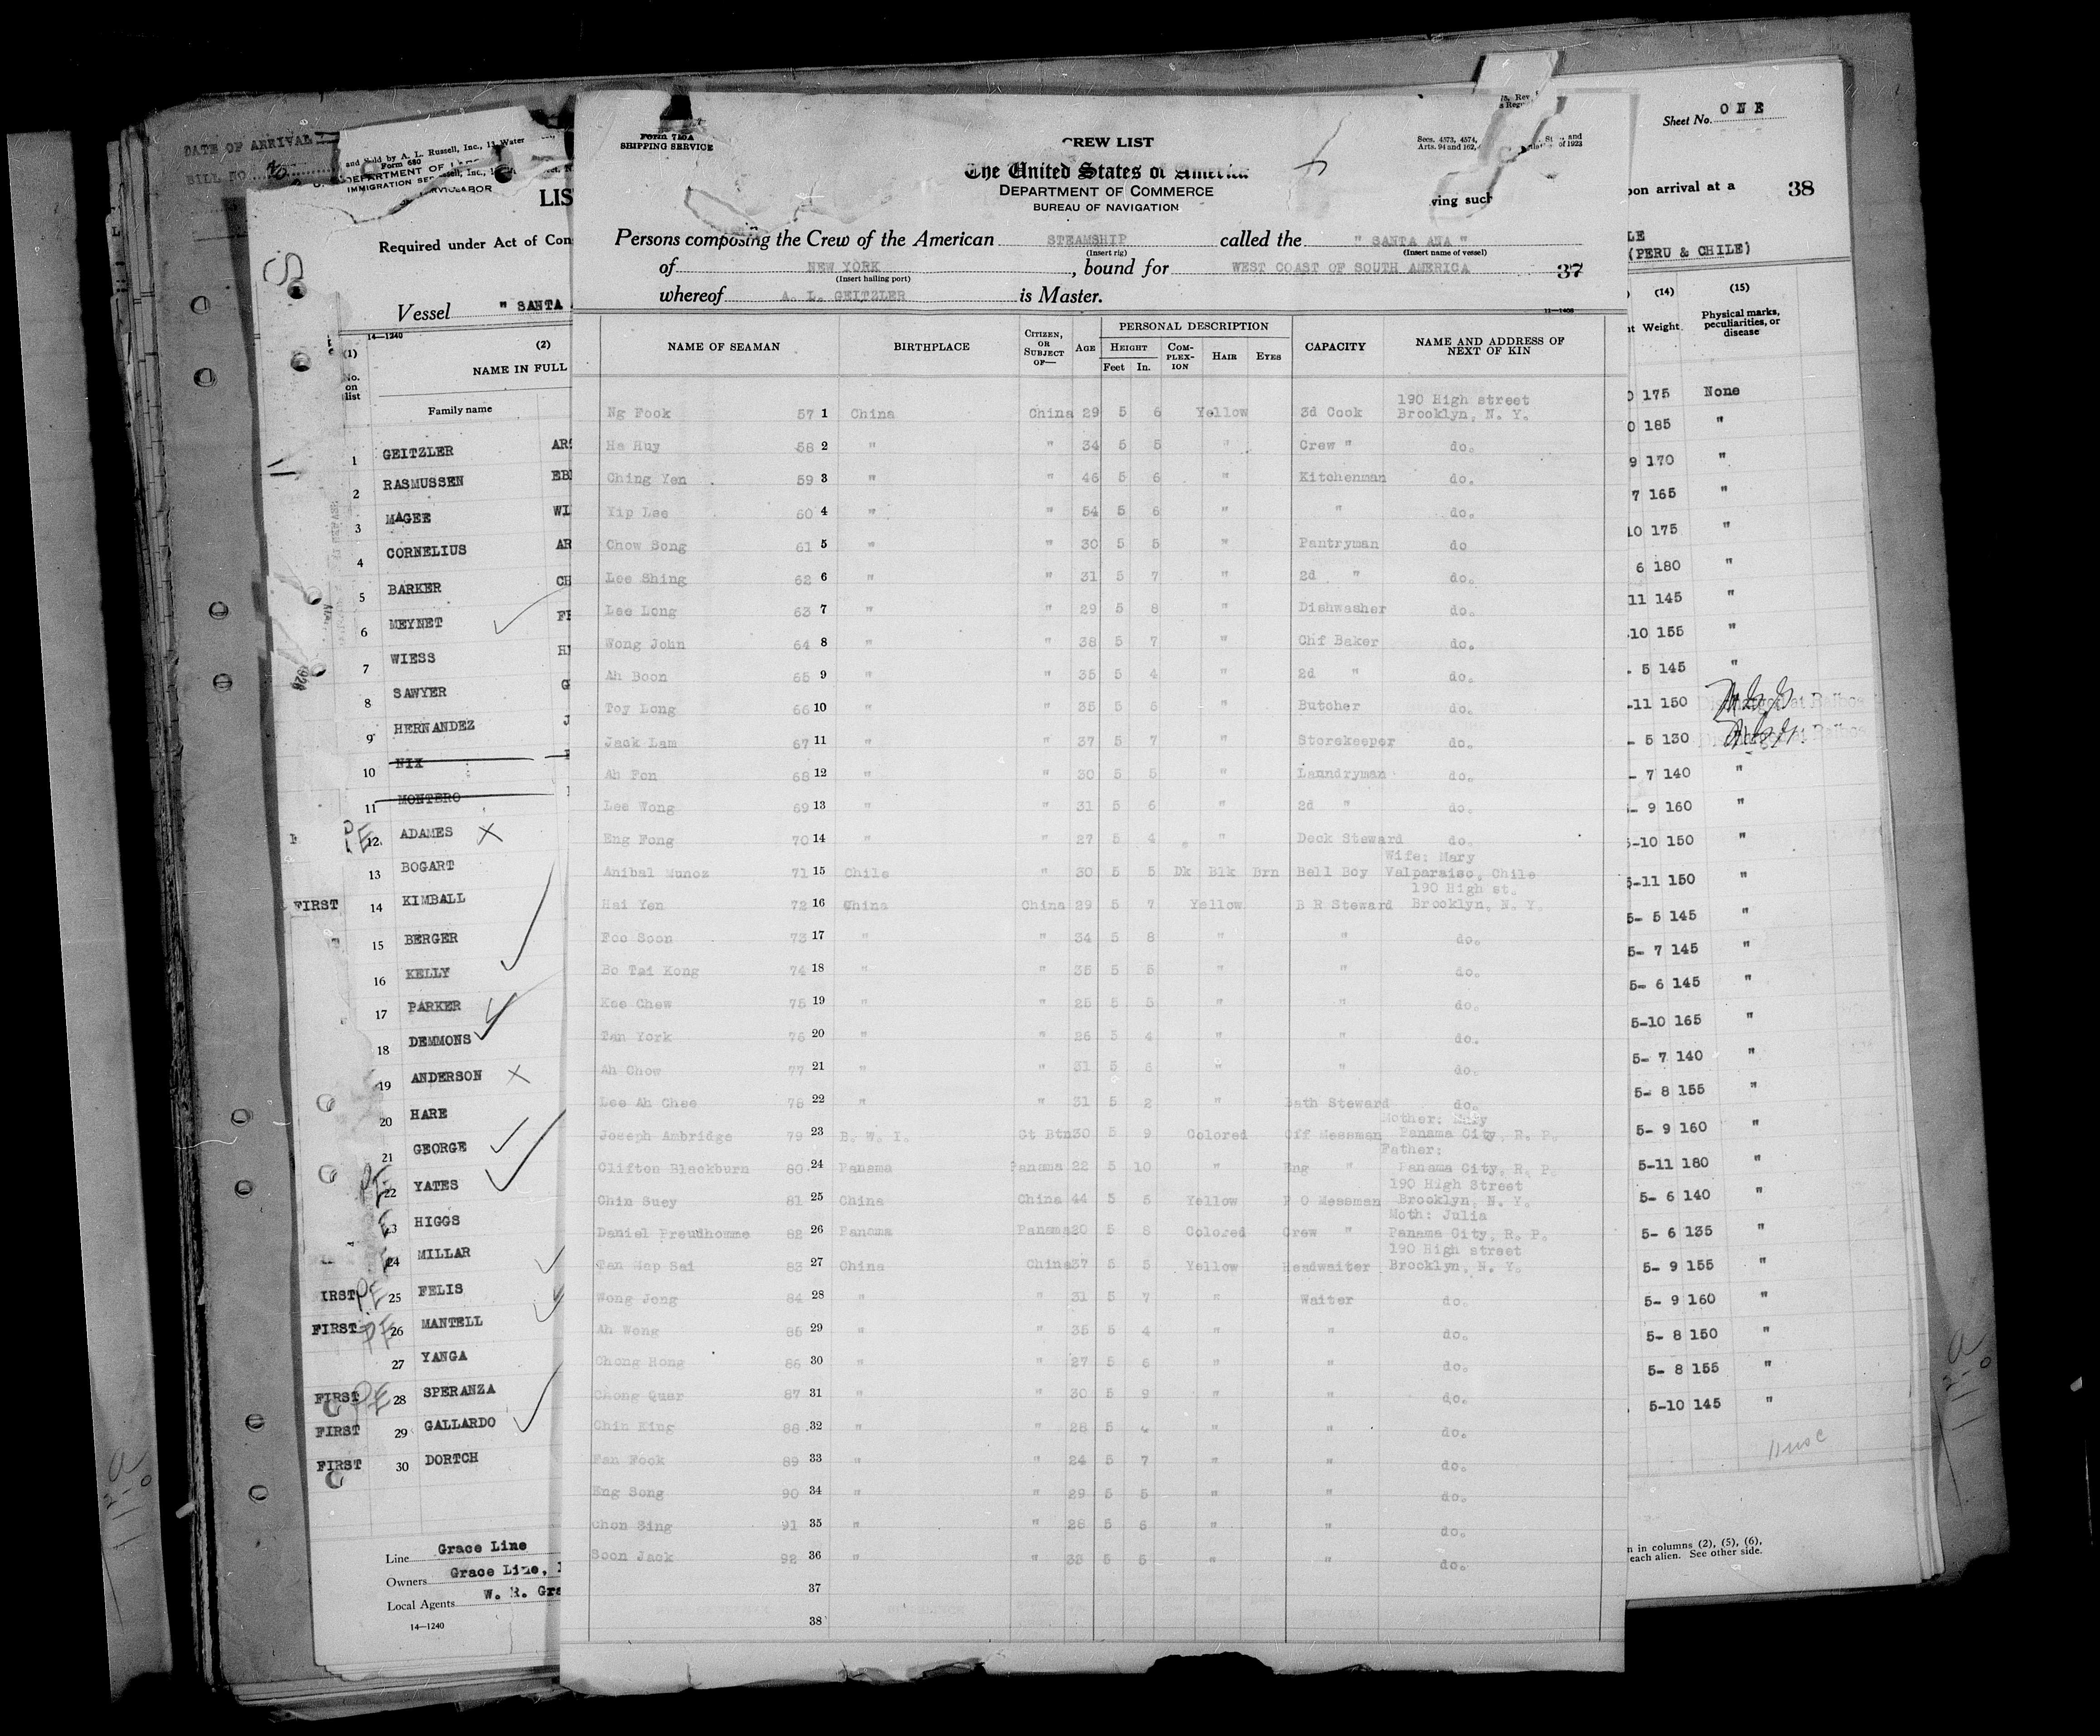 DATE OF ARRIVAL
BILL NO
and Sold by A. L. Russell, Inc., 11 Water
Form 680
DEPARTMENT OF
IMMIGRATION SER
LIS
Required under Act of Con
Vessel " SANTA
14—1240
(1) (2)
No. on list
NAME IN FULL
Family name
1 GEITZLER AR
2 RASMUSSEN EB
3 MAGEE WI
4 CORNELIUS AR
5 BARKER CH
6 MEYNET
7 WIESS
8 SAWYER
9 HERNANDEZ J
10 NIX
11 MONTERO
PE 12 ADAMES X
13 BOGART
FIRST 14 KIMBALL
15 BERGER
16 KELLY
17 PARKER
18 DEMMONS
19 ANDERSON X
20 HARE
21 GEORGE
PE 22 YATES
E 23 HIGGS
24 MILLAR
IRST PE 25 FELIS
FIRST PE 26 MANTELL
27 YANGA
FIRST PE 28 SPERANZA
FIRST 29 GALLARDO
FIRST 30 DORTCH
Line Grace Line
Owners Grace Line,
Local Agents W. R. Gra
14—1240
Form 710A
SHIPPING SERVICE
CREW LIST
The United States of America
DEPARTMENT OF COMMERCE
BUREAU OF NAVIGATION
Secs. 4573, 4574,
Arts. 94 and 162,
St and
of 1923
ving such
Persons composing the Crew of the American STEAMSHIP called the " SANTA ANA "
(Insert rig) (Insert name of vessel)
of NEW YORK, bound for WEST COAST OF SOUTH AMERICA 37
(Insert hailing port)
whereof A. L. GEITZLER is Master.
11—1408
NAME OF SEAMAN BIRTHPLACE CITIZEN, OR SUBJECT OF— AGE PERSONAL DESCRIPTION CAPACITY NAME AND ADDRESS OF NEXT OF KIN
HEIGHT COM-PLEX-ION HAIR EYES
Feet In.
190 High street
Ng Fook 57 1 China China 29 5 6 Yellow 3d Cook Brooklyn, N. Y.
Ha Huy 58 2 " " 34 5 5 " Crew " do.
Ching Yen 59 3 " " 46 5 6 " Kitchenman do.
Yip Lee 60 4 " " 54 5 6 " " do.
Chow Song 61 5 " " 30 5 5 " Pantryman do
Lee Shing 62 6 " " 31 5 7 " 2d " do.
Lee Long 63 7 " " 29 5 8 " Dishwasher do.
Wong John 64 8 " " 38 5 7 " Chf Baker do.
Ah Boon 65 9 " " 35 5 4 " 2d " do.
Toy Long 66 10 " " 35 5 5 " Butcher do.
Jack Lam 67 11 " " 37 5 7 " Storekeeper do.
Ah Fon 68 12 " " 30 5 5 " Lanndryman do.
Lee Wong 69 13 " " 31 5 6 " 2d " do.
Eng Fong 70 14 " " 27 5 4 " Deck Steward do.
Wife: Mary
Anibal Munoz 71 15 Chile " 30 5 5 Dk Blk Brn Bell Boy Valparaiso, Chile
190 High st.
Hai Yen 72 16 China China 29 5 7 Yellow B R Steward Brooklyn, N. Y.
Foo Soon 73 17 " " 34 5 8 " " do.
Bo Tai Kong 74 18 " " 35 5 5 " " do.
Kee Chew 75 19 " " 25 5 5 " " do.
Tan York 76 20 " " 26 5 4 " " do.
Ah Chow 77 21 " " 31 5 6 " " do.
Lee Ah Chee 78 22 " " 31 5 2 " Bath Steward do.
Mother: Mary
Joseph Ambridge 79 23 B. W. I. Gt Btn 30 5 9 Colored Off Messman Panama City, R. P.
Father:
Clifton Blackburn 80 24 Panama Panama 22 5 10 " Eng " Panama City, R. P.
190 High Street
Chin Suey 81 25 China China 44 5 5 Yellow P O Messman Brooklyn, N. Y.
Moth: Julia
Daniel Preudhomme 82 26 Panama Panama 20 5 8 Colored Crew " Panama City, R. P.
190 High street
Tan Hap Sai 83 27 China China 37 5 5 Yellow Headwaiter Brooklyn, N. Y.
Wong Jong 84 28 " " 31 5 7 " Waiter do.
Ah Wong 85 29 " " 35 5 4 " " do.
Chong Hong 86 30 " " 27 5 6 " " do.
Chong Quar 87 31 " " 30 5 9 " " do.
Chin King 88 32 " " 28 5 " " do.
Fan Fook 89 33 " " 24 5 7 " " do.
Eng Song 90 34 " " 29 5 5 " " do.
Chon Sing 91 35 " " 28 5 6 " " do.
Soon Jack 92 36 " " 33 5 5 " " do.
37
38
Sheet No. ONE
pon arrival at a 38
LE
(PERU & CHILE)
(14) (15)
Weight Physical marks, peculiarities, or disease
0 175 None
0 185 "
9 170 "
7 165 "
10 175 "
6 180 "
11 145 "
-10 155 "
- 5 145 "
-11 150 Discharged at Balboa
- 5 130 Discharged at Balboa
- 7 140 "
- 9 160 "
5-10 150 "
5-11 150 "
5- 5 145 "
5- 7 145 "
5- 6 145 "
5-10 165 "
5- 7 140 "
5- 8 155 "
5- 9 160 "
5-11 180 "
5- 6 140 "
5- 6 135 "
5- 9 155 "
5- 9 160 "
5- 8 150 "
5- 8 155 "
5-10 145 "
n in columns (2), (5), (6),
each alien. See other side.